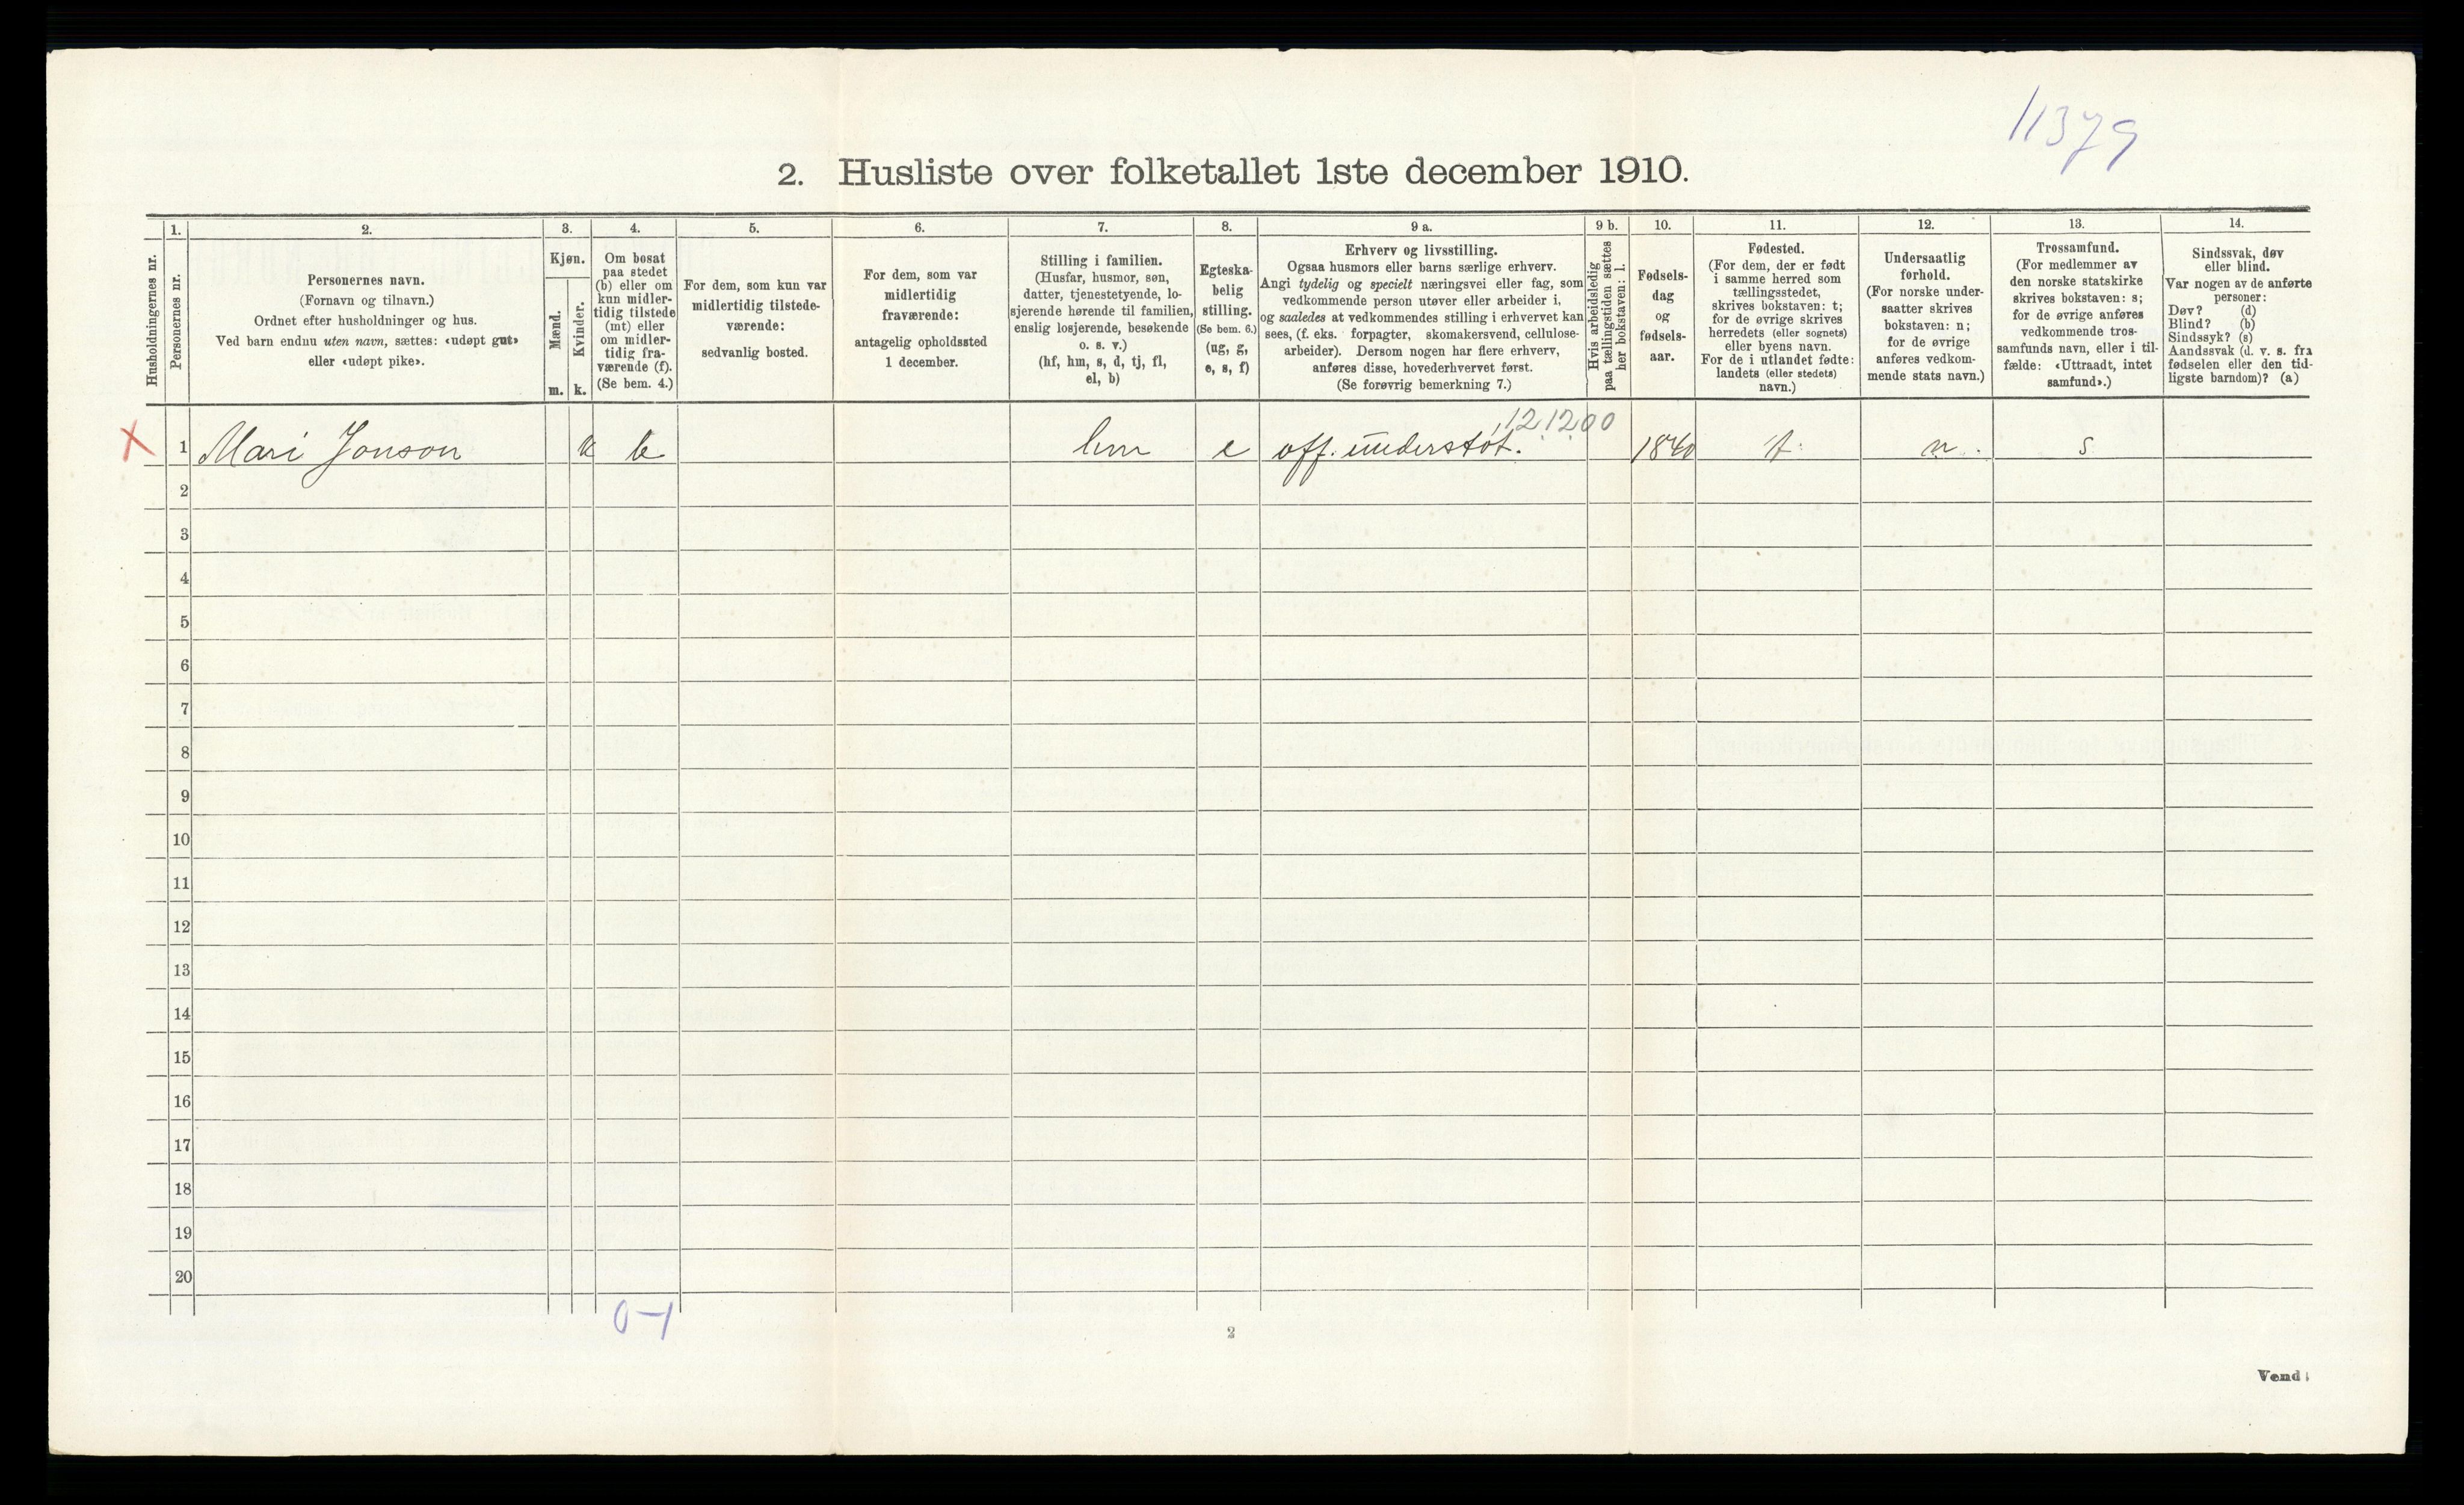 11379
2. Husliste over folketallet 1ste december 1910.
1. 2. 3. 4. 5. 6. 7. 8. 9 a. 9 b. 10. 11. 12. 13. 14.
Husholdningernes nr.
Personernes nr.
Personernes navn.
(Fornavn og tilnavn.)
Ordnet efter husholdninger og hus.
Ved barn endnu uten navn, sættes: «udøpt gut»
eller «udøpt pike».
Kjøn.
Mænd.
m.
Kvinder.
k.
Om bosat
paa stedet
(b) eller om
kun midler-
tidig tilstede
(mt) eller
om midler-
tidig fra-
værende (f).
(Se bem. 4.)
For dem, som kun var
midlertidig tilstede-
værende:
sedvanlig bosted.
For dem, som var
midlertidig
fraværende:
antagelig opholdssted
1 december.
Stilling i familien.
(Husfar, husmor, søn,
datter, tjenestetyende, lo-
sjerende hørende til familien,
enslig losjerende, besøkende
o. s. v.)
(hf, hm, s, d, tj, fl,
el, b)
Egteska-
belig
stilling.
(Se bem. 6.)
(ug, g,
e, s, f)
Erhverv og livsstilling.
Ogsaa husmors eller barns særlige erhverv.
Angi tydelig og specielt næringsvei eller fag, som
vedkommende person utøver eller arbeider i,
og saaledes at vedkommendes stilling i erhvervet kan
sees, (f. eks. forpagter, skomakersvend, cellulose-
arbeider). Dersom nogen har flere erhverv,
anføres disse, hovederhvervet først.
(Se forøvrig bemerkning 7.)
Hvis arbeidsledig
paa tællingstiden sættes
her bokstaven: l.
Fødsels-
dag
og
fødsels-
aar.
Fødested.
(For dem, der er født
i samme herred som
tællingsstedet,
skrives bokstaven: t;
for de øvrige skrives
herredets (eller sognets)
eller byens navn.
For de i utlandet fødte:
landets (eller stedets)
navn.)
Undersaatlig
forhold.
(For norske under-
saatter skrives
bokstaven: n;
for de øvrige
anføres vedkom-
mende stats navn.)
Trossamfund.
(For medlemmer av
den norske statskirke
skrives bokstaven: s;
for de øvrige anføres
vedkommende tros-
samfunds navn, eller i til-
fælde: «Uttraadt, intet
samfund».)
Sindssvak, døv
eller blind.
Var nogen av de anførte
personer:
Døv? (d)
Blind? (b)
Sindssyk? (s)
Aandssvak (d. v. s. fra
fødselen eller den tid-
ligste barndom)? (a)
12.1200
X 1 Mari Jonson k b hm e off. understøt. 1840 t n. s
2
3
4
5
6
7
8
9
10
11
12
13
14
15
16
17
18
19
20
0-1
2
Vend!